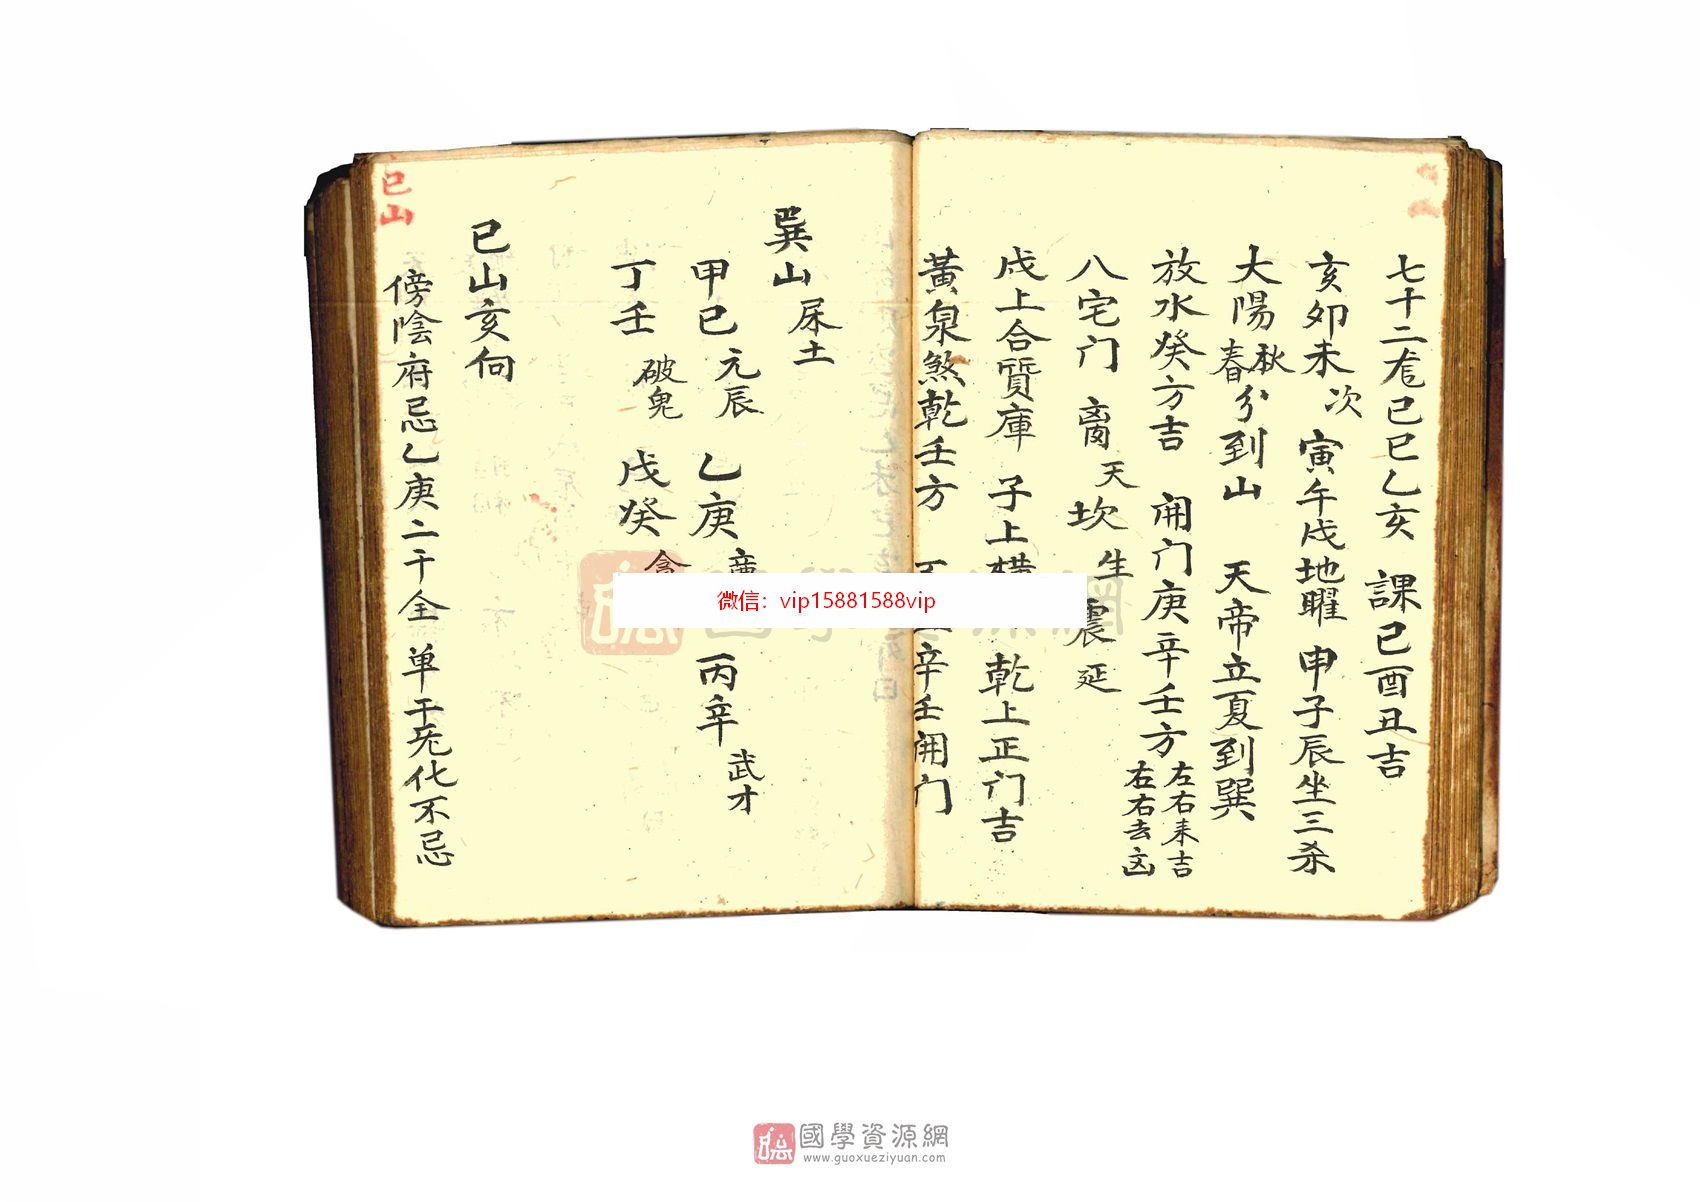 七十二旄巳巳乙亥 課巳酉丑吉
亥卯未次 寅午戌地曜 申子辰坐三杀
太陽秋春分到山 天帝立夏到巽
放水癸方吉 開门庚辛壬方 左右来吉 在右去凶
八宅门 离天 坎生 震延
戌上合質庫 子上横 乾上正门吉
黃泉煞乾壬方 辛壬開门
巽山屎土
甲己元辰 乙庚 丙辛武才
丁壬破鬼 戊癸貪
巳山亥向
傍陰府忌乙庚二干全 单干旡化不忌
巳山
微信：vip15881588vip
國學資源網
www.guoxueziyuan.com